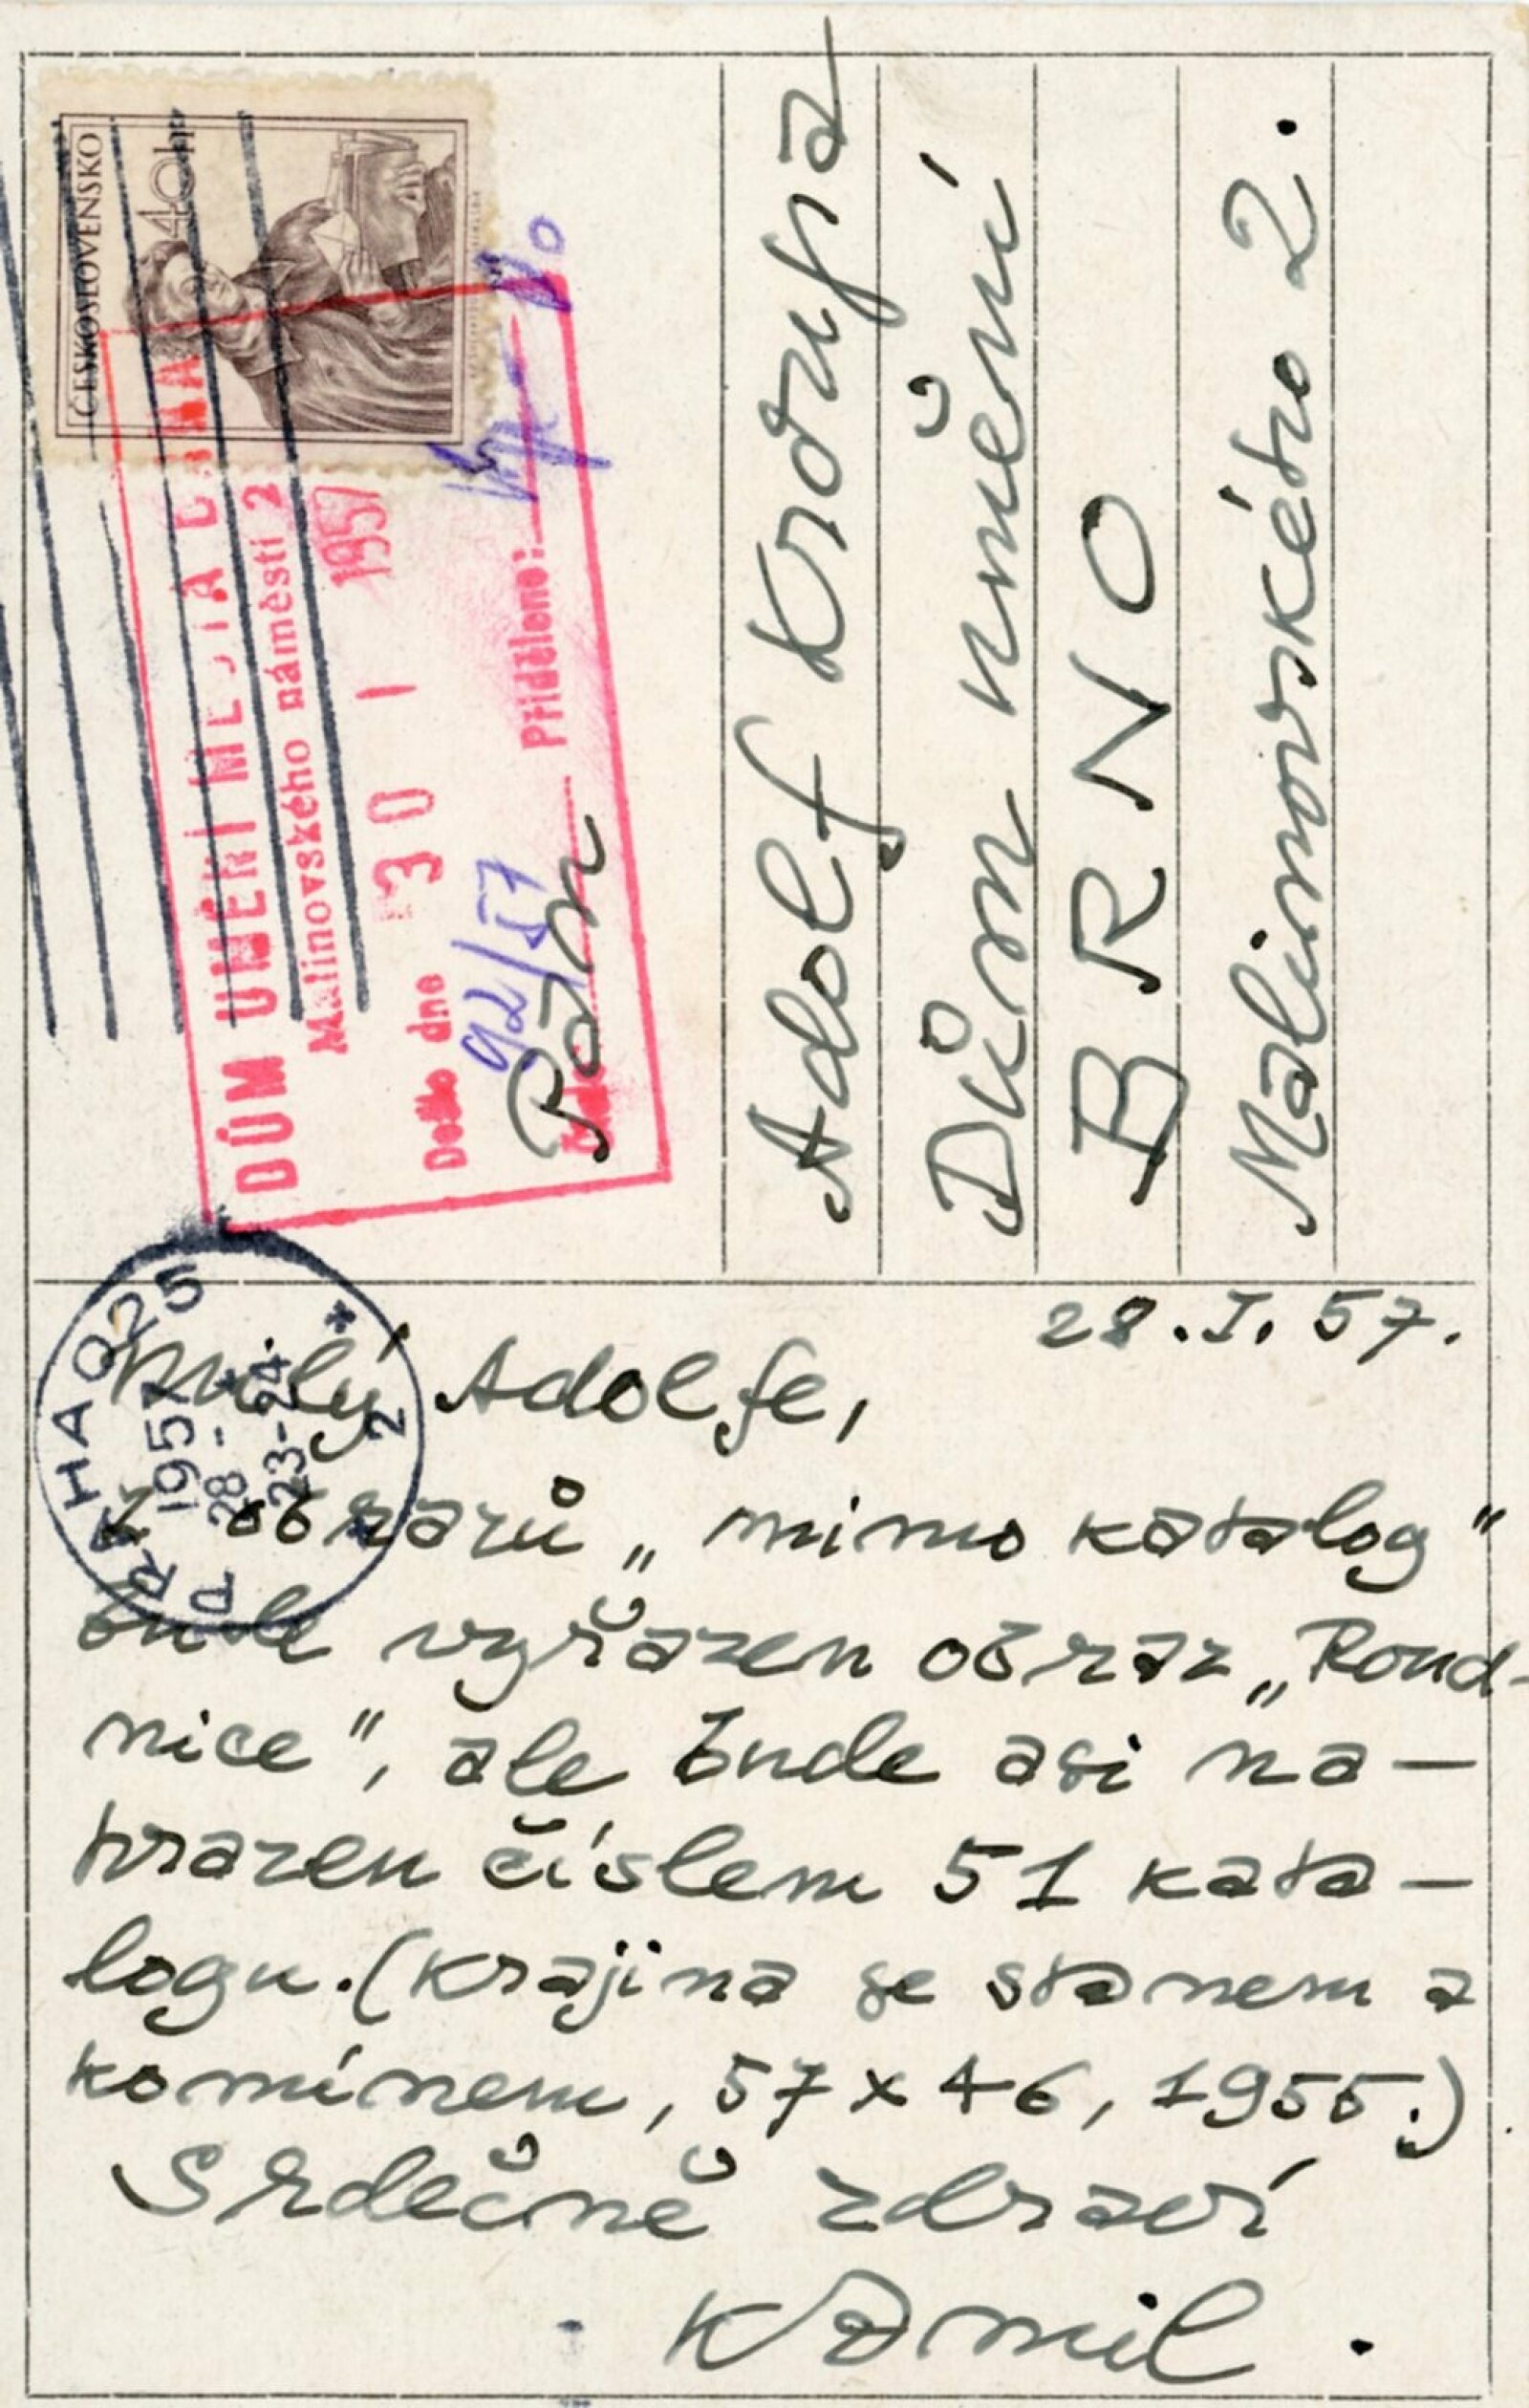 ČESKOSLOVENSKO
40h
DŮM UMĚNÍ MĚSTA BRNA
Malinovského náměstí 2
30 I 1957
Došlo dne
92/57
Přiděleno:
Pán
Adolf Kroupa
Dům umění
BRNO
Malinovského 2.
PRAHA 025
1957
28
23-24
2
28.I.57.
Milý Adolfe,
z obrazů „mimo katalog"
bude vyřazen obraz „Roud-
nice", ale bude asi na-
hrazen číslem 51 kata-
logu. (Krajina se stanem a
komínem, 57 x 46, 1955.)
Srdečně zdraví
Kamil.